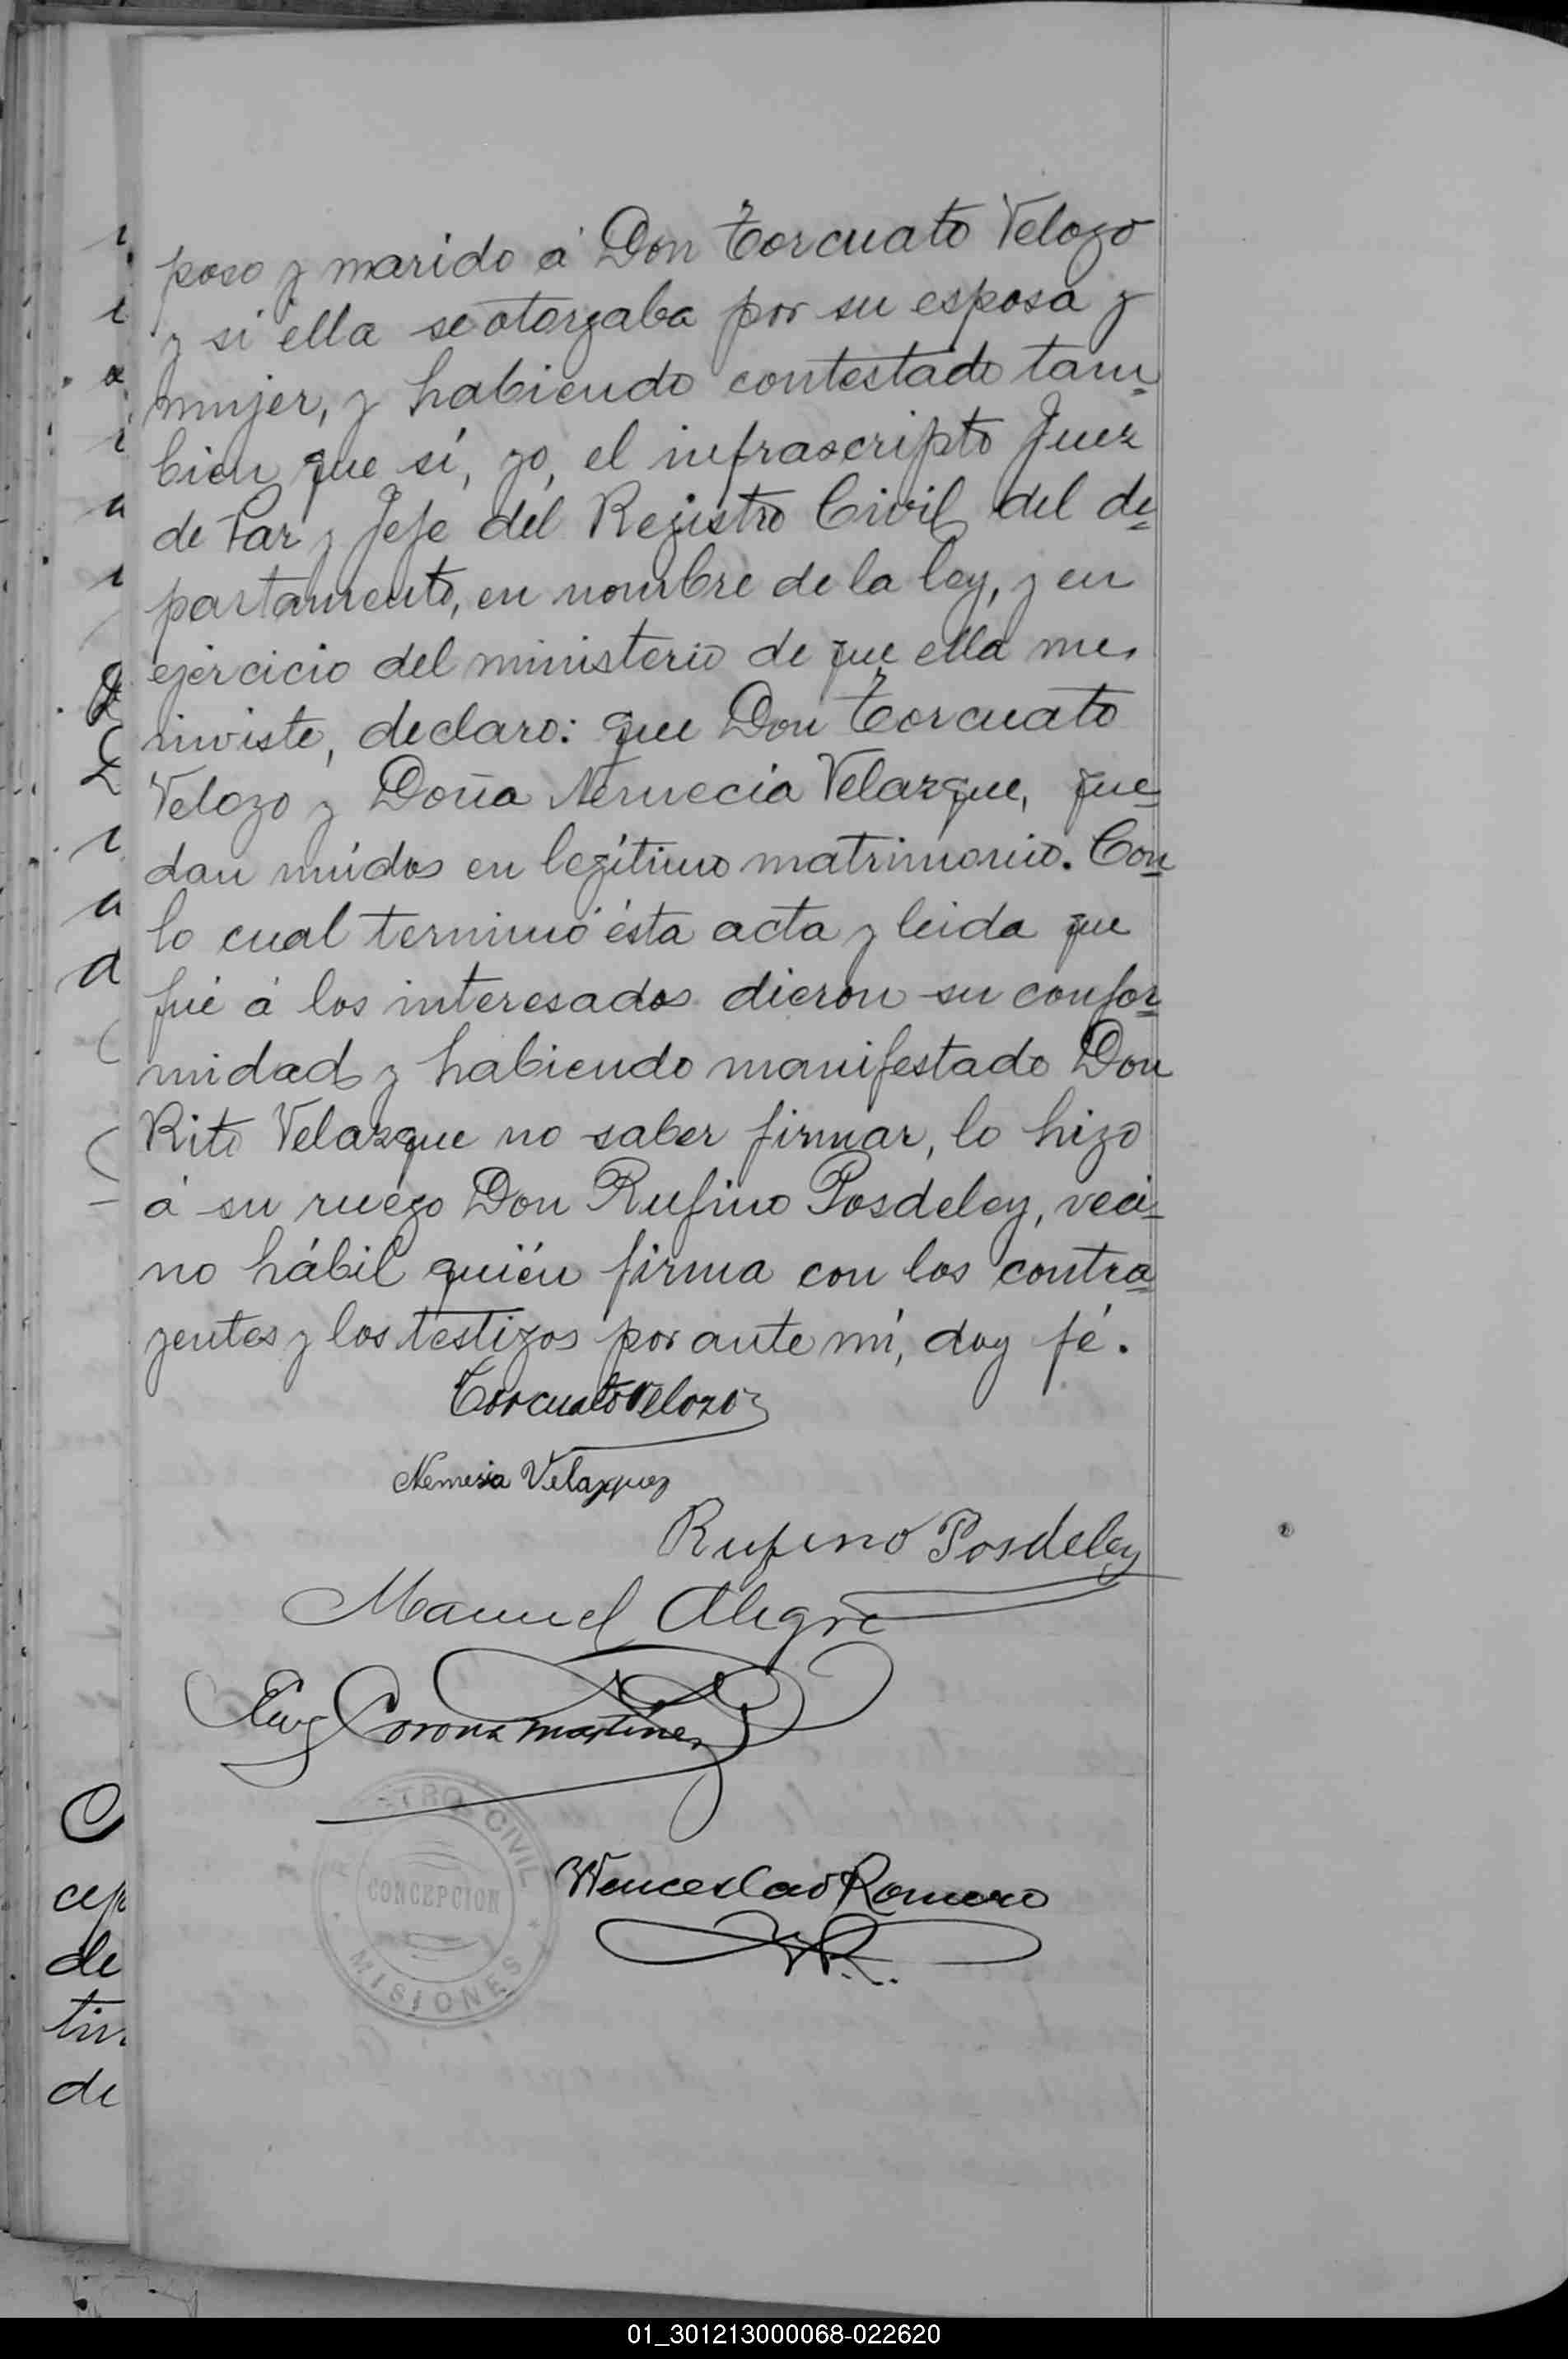 poso y marido á Don Torcuato Velozo
y si ella se otorgaba por su esposa y
mujer, y habiendo contestado tam-
bien que sí, yo, el infrascripto Juez
de Paz y Jefe del Registro Civil del de-
partamento, en nombre de la ley, y en
ejercicio del ministerio de que ella me
inviste, declaro: que Don Torcuato
Velozo y Doña Nemecia Velazque, que-
dan unidos en legítimo matrimonio. Con
lo cual terminó ésta acta y leida que
fué á los interesados dieron su confor-
midad y habiendo manifestado Don
Rito Velazque no saber firmar, lo hizo
á su ruego Don Rufino Posdeley, veci-
no hábil quién firma con los contra-
yentes y los testigos por ante mí, doy fé.
Torcuato Velozo
Nemesia Velazquez
Rufino Posdeley
Manuel Alegre
Corona Martinez
CIVIL
CONCEPCION
MISIONES
Wenceslao Romero
WR.
cep
de
tin
de
01_301213000068-022620